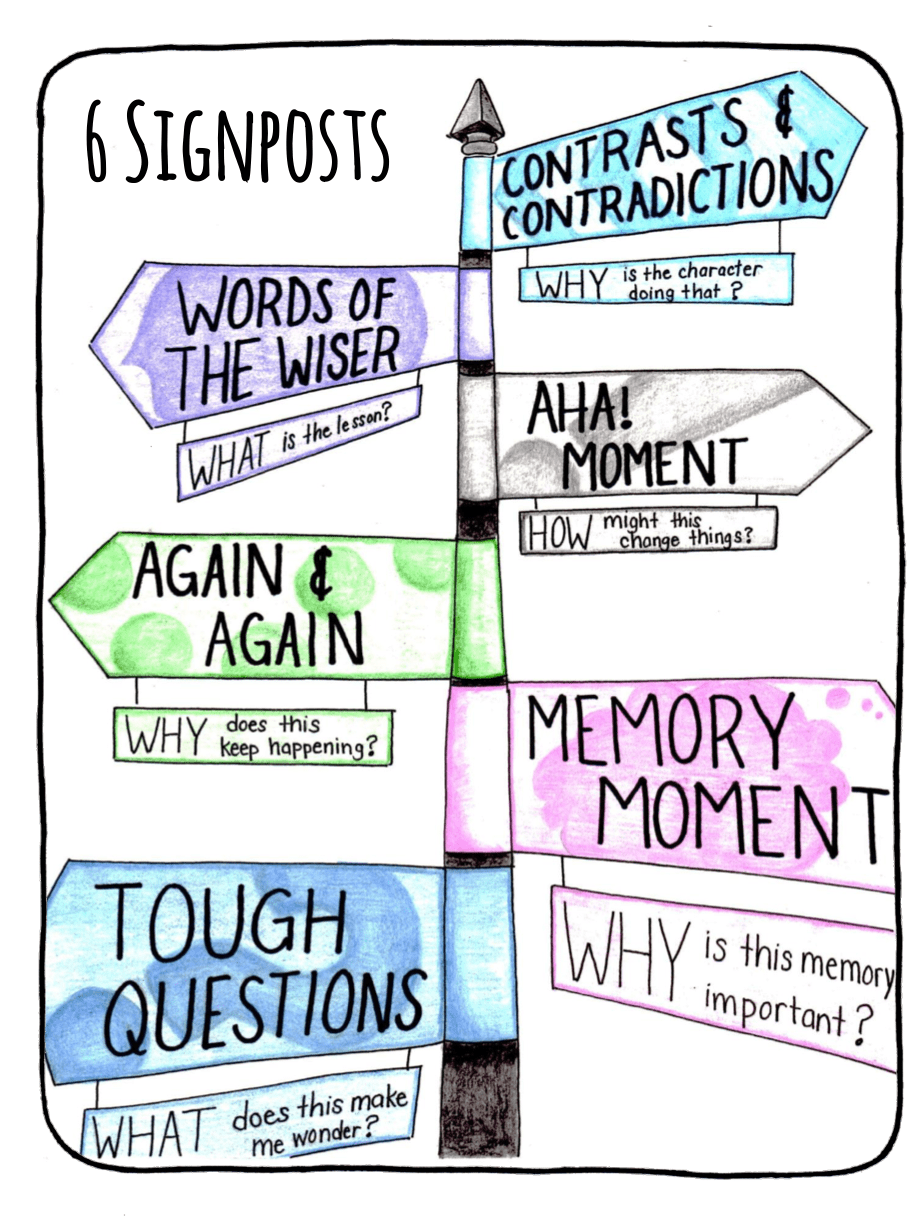 6 SIGNPOSTS
CONTRASTS &
CONTRADICTIONS
WHY is the character
doing that?
WORDS OF
THE WISER
WHAT is the lesson?
AHA!
MOMENT
HOW might this
change things?
AGAIN &
AGAIN
WHY does this
keep happening?
MEMORY
MOMENT
WHY is this memory
important?
TOUGH
QUESTIONS
WHAT does this make
me wonder?